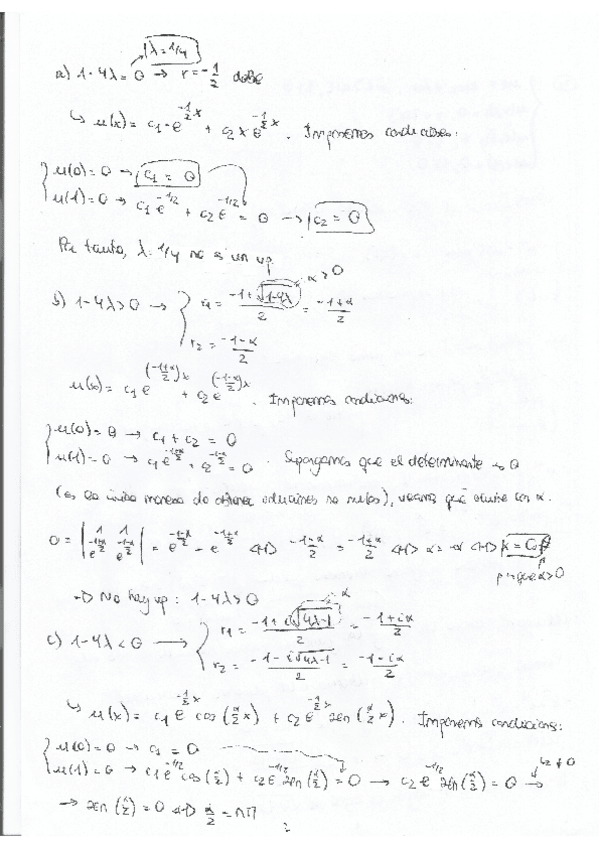 a) 1-4λ=0 → r=-1/2 doble
λ=1/4
↳ u(x) = c₁·e^{-1/2 x} + c₂ x e^{-1/2 x}. Imponemos condiciones:
u(0)=0 → c₁ = 0
u(1)=0 → c₁ e^{-1/2} + c₂ e^{-1/2} = 0 → c₂ = 0
Por tanto, λ=1/4 no es un vp
b) 1-4λ>0 → r₁ = (-1+√(1-4λ))/2 = (-1+α)/2
α>0
r₂ = (-1-α)/2
u(x) = c₁ e^{((-1+α)/2)x} + c₂ e^{((-1-α)/2)x}. Imponemos condiciones:
u(0)=0 → c₁ + c₂ = 0
u(1)=0 → c₁ e^{(-1+α)/2} + c₂ e^{(-1-α)/2} = 0. Supongamos que el determinante es 0
(es la única manera de obtener soluciones no nulas), veamos qué ocurre con α.
0 = |1 1; e^{(-1+α)/2} e^{(-1-α)/2}| = e^{(-1-α)/2} - e^{(-1+α)/2} ⇔ (-1-α)/2 = (-1+α)/2 ⇔ α=-α ⇔ α=0
porque α>0
→ No hay vp: 1-4λ>0
c) 1-4λ<0 → r₁ = (-1+i√(4λ-1))/2 = (-1+iα)/2
α
r₂ = (-1-i√(4λ-1))/2 = (-1-iα)/2
↳ u(x) = c₁ e^{-1/2 x} cos(α/2 x) + c₂ e^{-1/2 x} sen(α/2 x). Imponemos condiciones:
u(0)=0 → c₁ = 0
u(1)=0 → c₁ e^{-1/2} cos(α/2) + c₂ e^{-1/2} sen(α/2) = 0 → c₂ e^{-1/2} sen(α/2) = 0 →
c₂ ≠ 0
→ sen(α/2) = 0 ⇔ α/2 = nπ
2